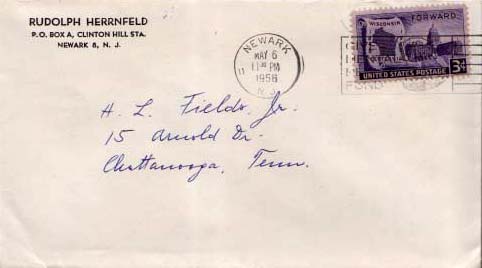 RUDOLPH HERRNFELD
P.O. BOX A, CLINTON HILL STA.
NEWARK 8, N. J.
NEWARK
MAY 6
PM
1956
N.J.
WISCONSIN FORWARD
UNITED STATES POSTAGE 3¢
FUND
H. L. Fields, Jr.
15 Arnold Dr.
Chattanooga, Tenn.